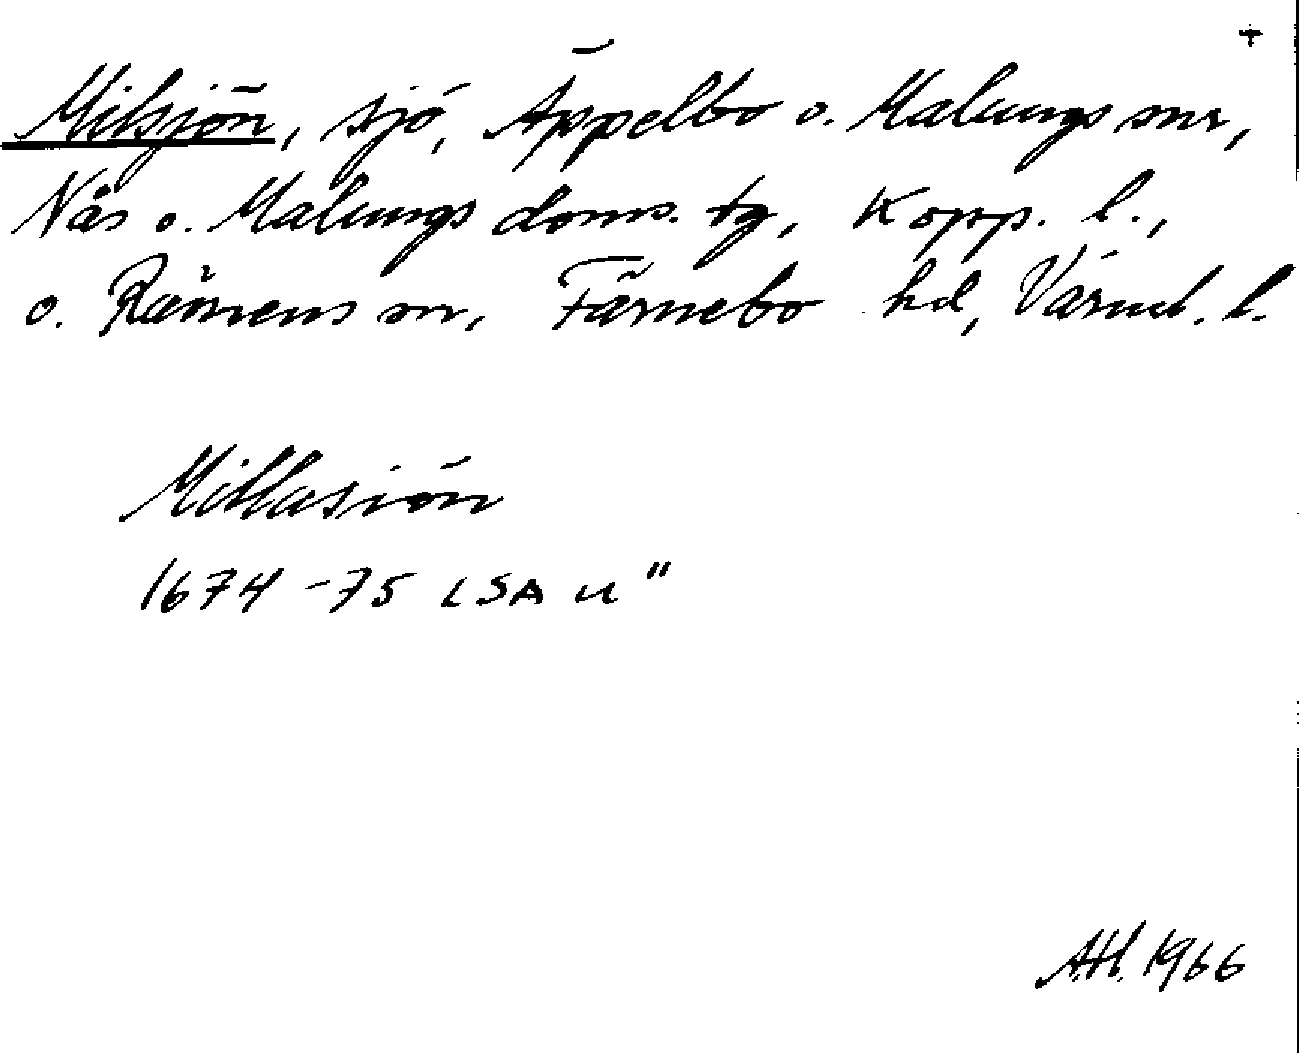 +
Milsjön, sjö, Äppelbo o. Malungs snr,
Nås o. Malungs doms. tg, Kopp. l.,
o. Rämens sn, Färnebo hd, Värml. l.
Millasiön
1674-75 LSA u"
A.H. 1966